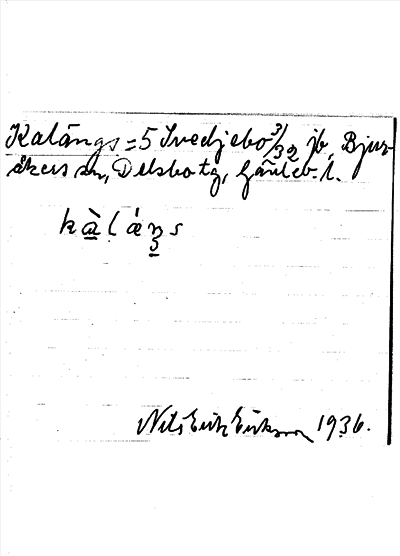 Kalängs = 5 Svedjebo 3/32 jb, Bjur-
åkers sn, Delsbo tg, Gävleb. l.
kàláŋs
Nils Erik Eriksson 1936.